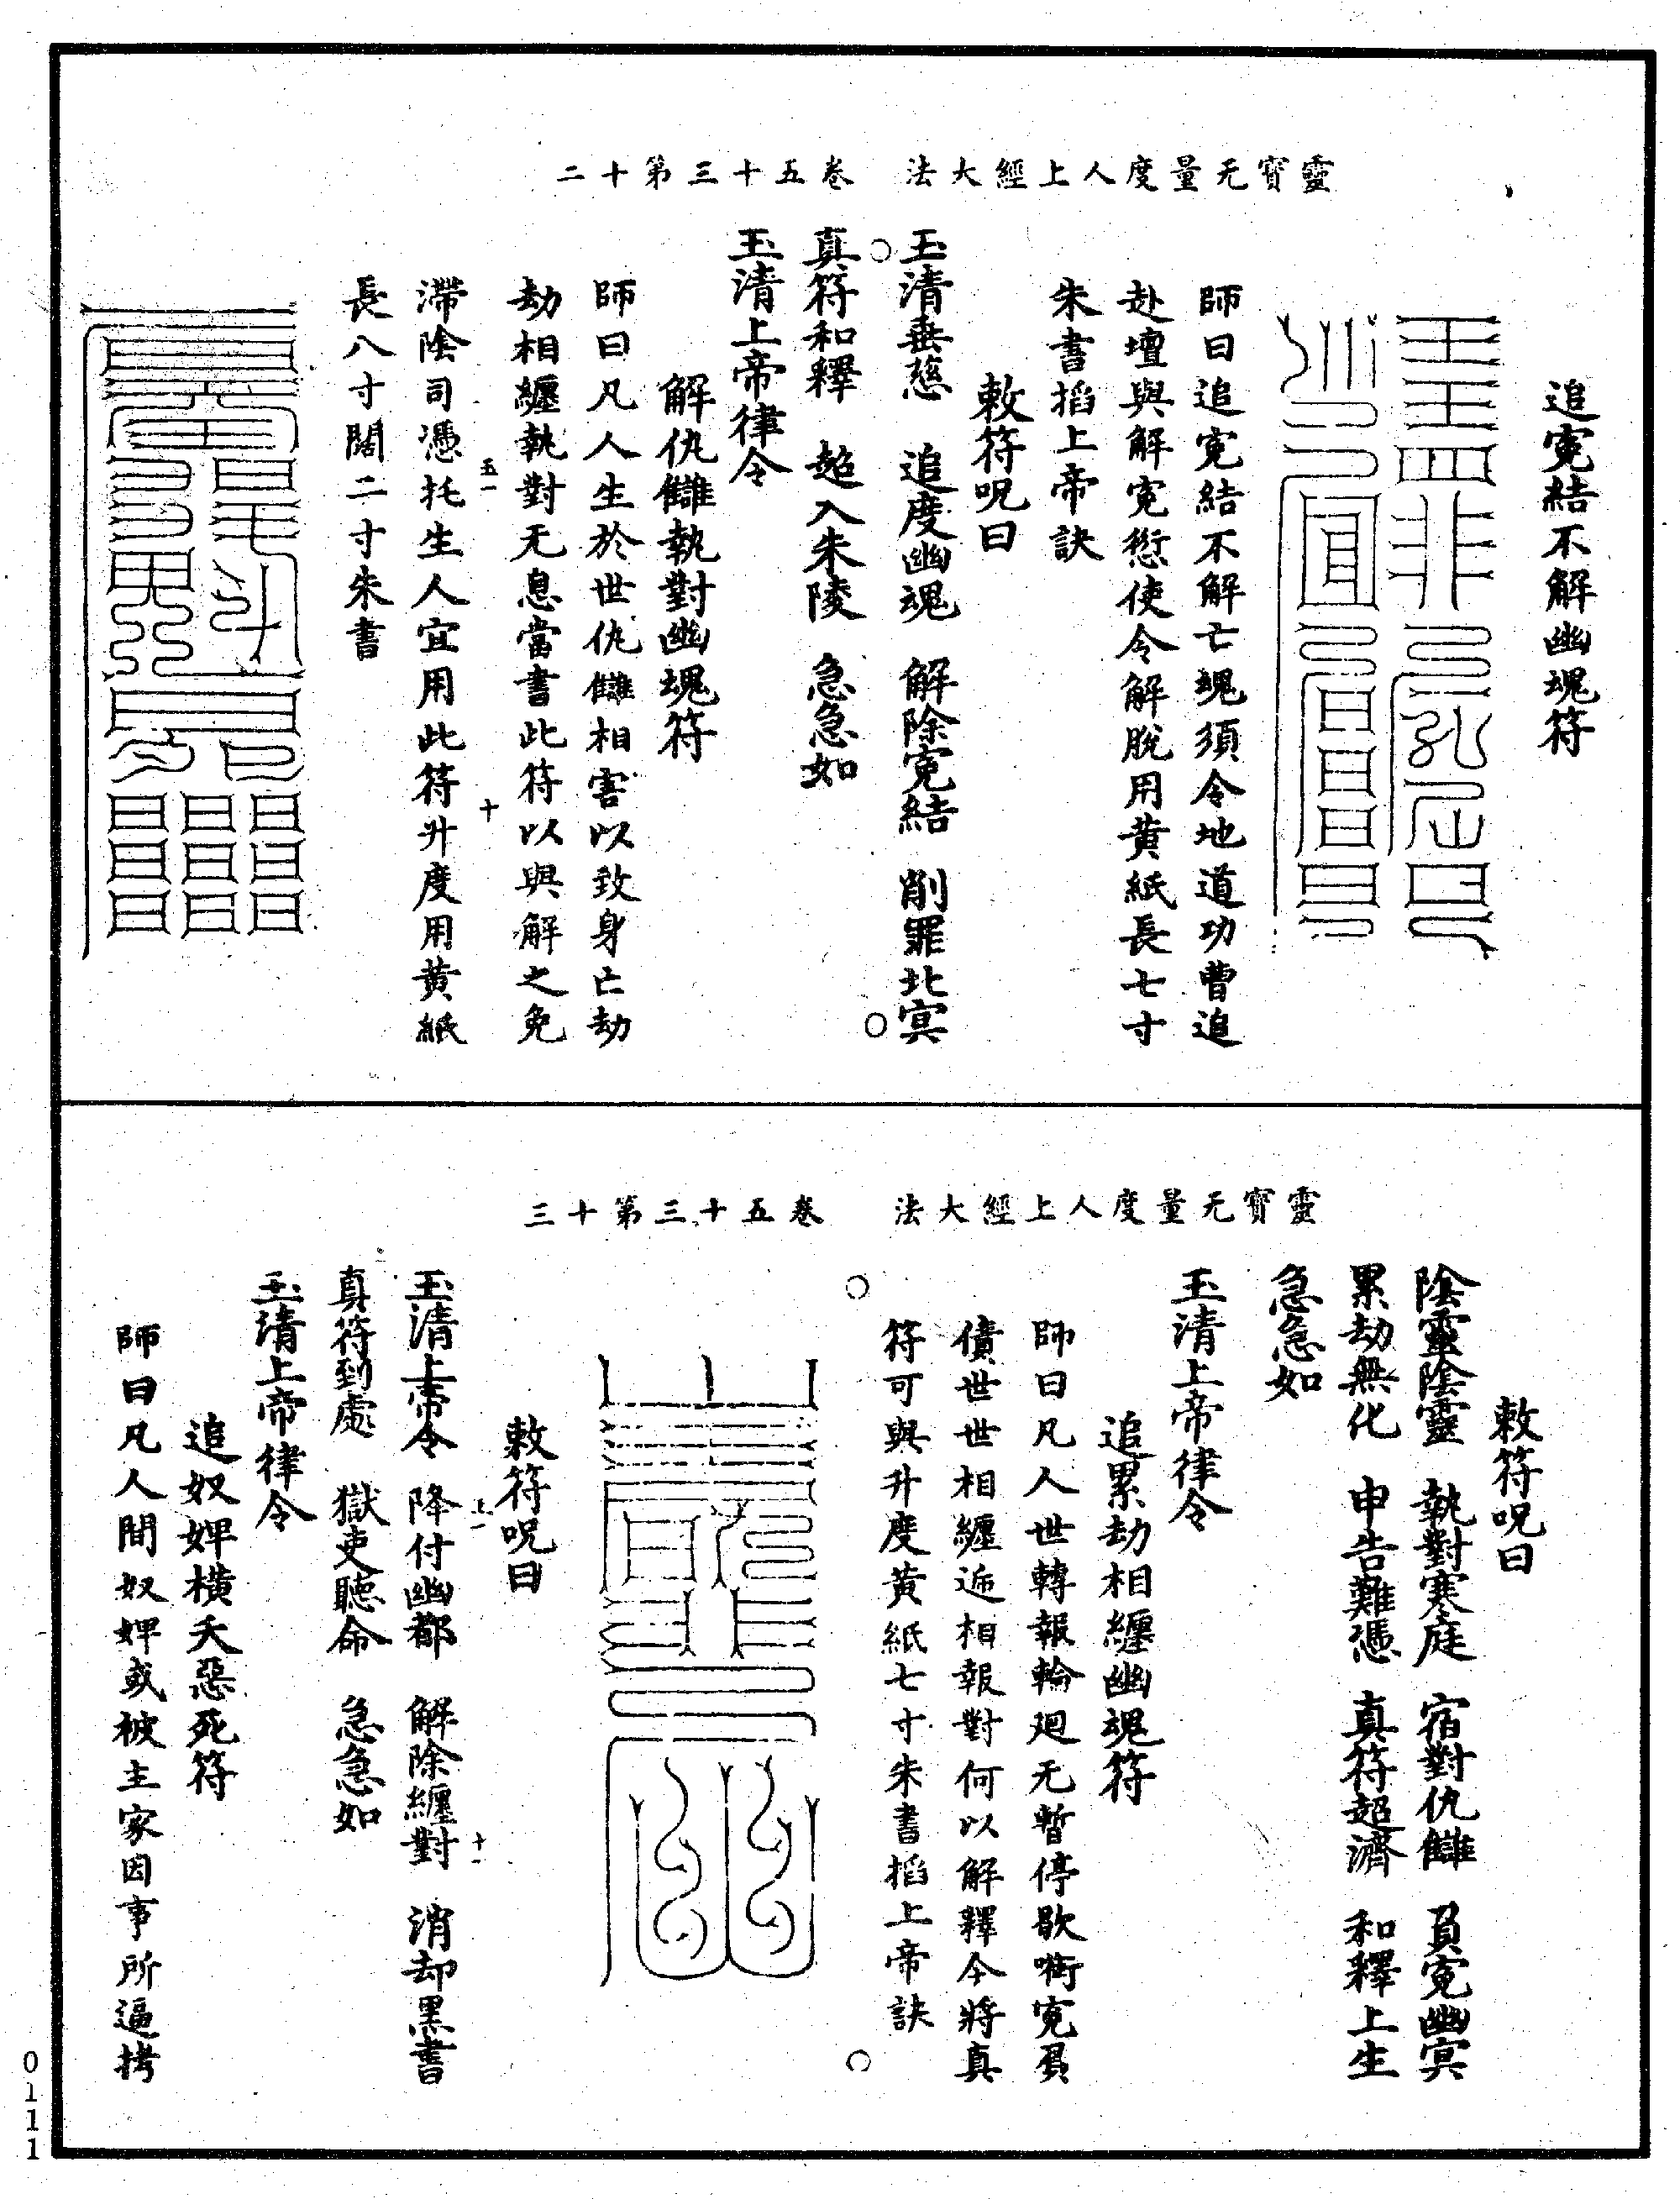 靈寶无量度人上經大法　卷五十三第十二
追寃結不解幽魂符
師曰追寃結不解亡魂須令地道功曹追
赴壇與解寃愆使令解脫用黄紙長七寸
朱書掐上帝訣
敕符呪曰
玉清垂慈　追度幽魂　解除寃結　削罪北冥
真符和釋　超入朱陵　急急如
玉清上帝律令
解仇讎執對幽魂符
師曰凡人生於世仇讎相害以致身亡劫
劫相纏執對无息當書此符以與解之免
五一　十
滯陰司憑托生人宜用此符升度用黄紙
長八寸闊二寸朱書
靈寶无量度人上經大法　卷五十三第十三
敕符呪曰
陰靈陰靈　執對寒庭　宿對仇讎　負寃幽冥
累劫無化　申告難憑　真符超濟　和釋上生
急急如
玉清上帝律令
追累劫相纏幽魂符
師曰凡人世轉報輪廻无暫停歇啣寃負
債世世相纏逓相報對何以解釋今將真
符可與升度黄紙七寸朱書掐上帝訣
敕符呪曰
十一
玉清上帝令　降付幽都　解除纏對　消却黑書
真符到處　獄吏聽命　急急如
玉清上帝律令
追奴婢橫夭惡死符
師曰凡人間奴婢或被主家因事所逼拷
0111